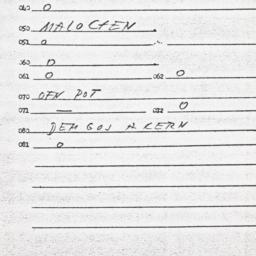 040 0
050 MALOCHEN
051 0
060 0
061 0 062 0
070 OFN POT
071 — 072 0
080 DEM GOJ A KERN
081 0